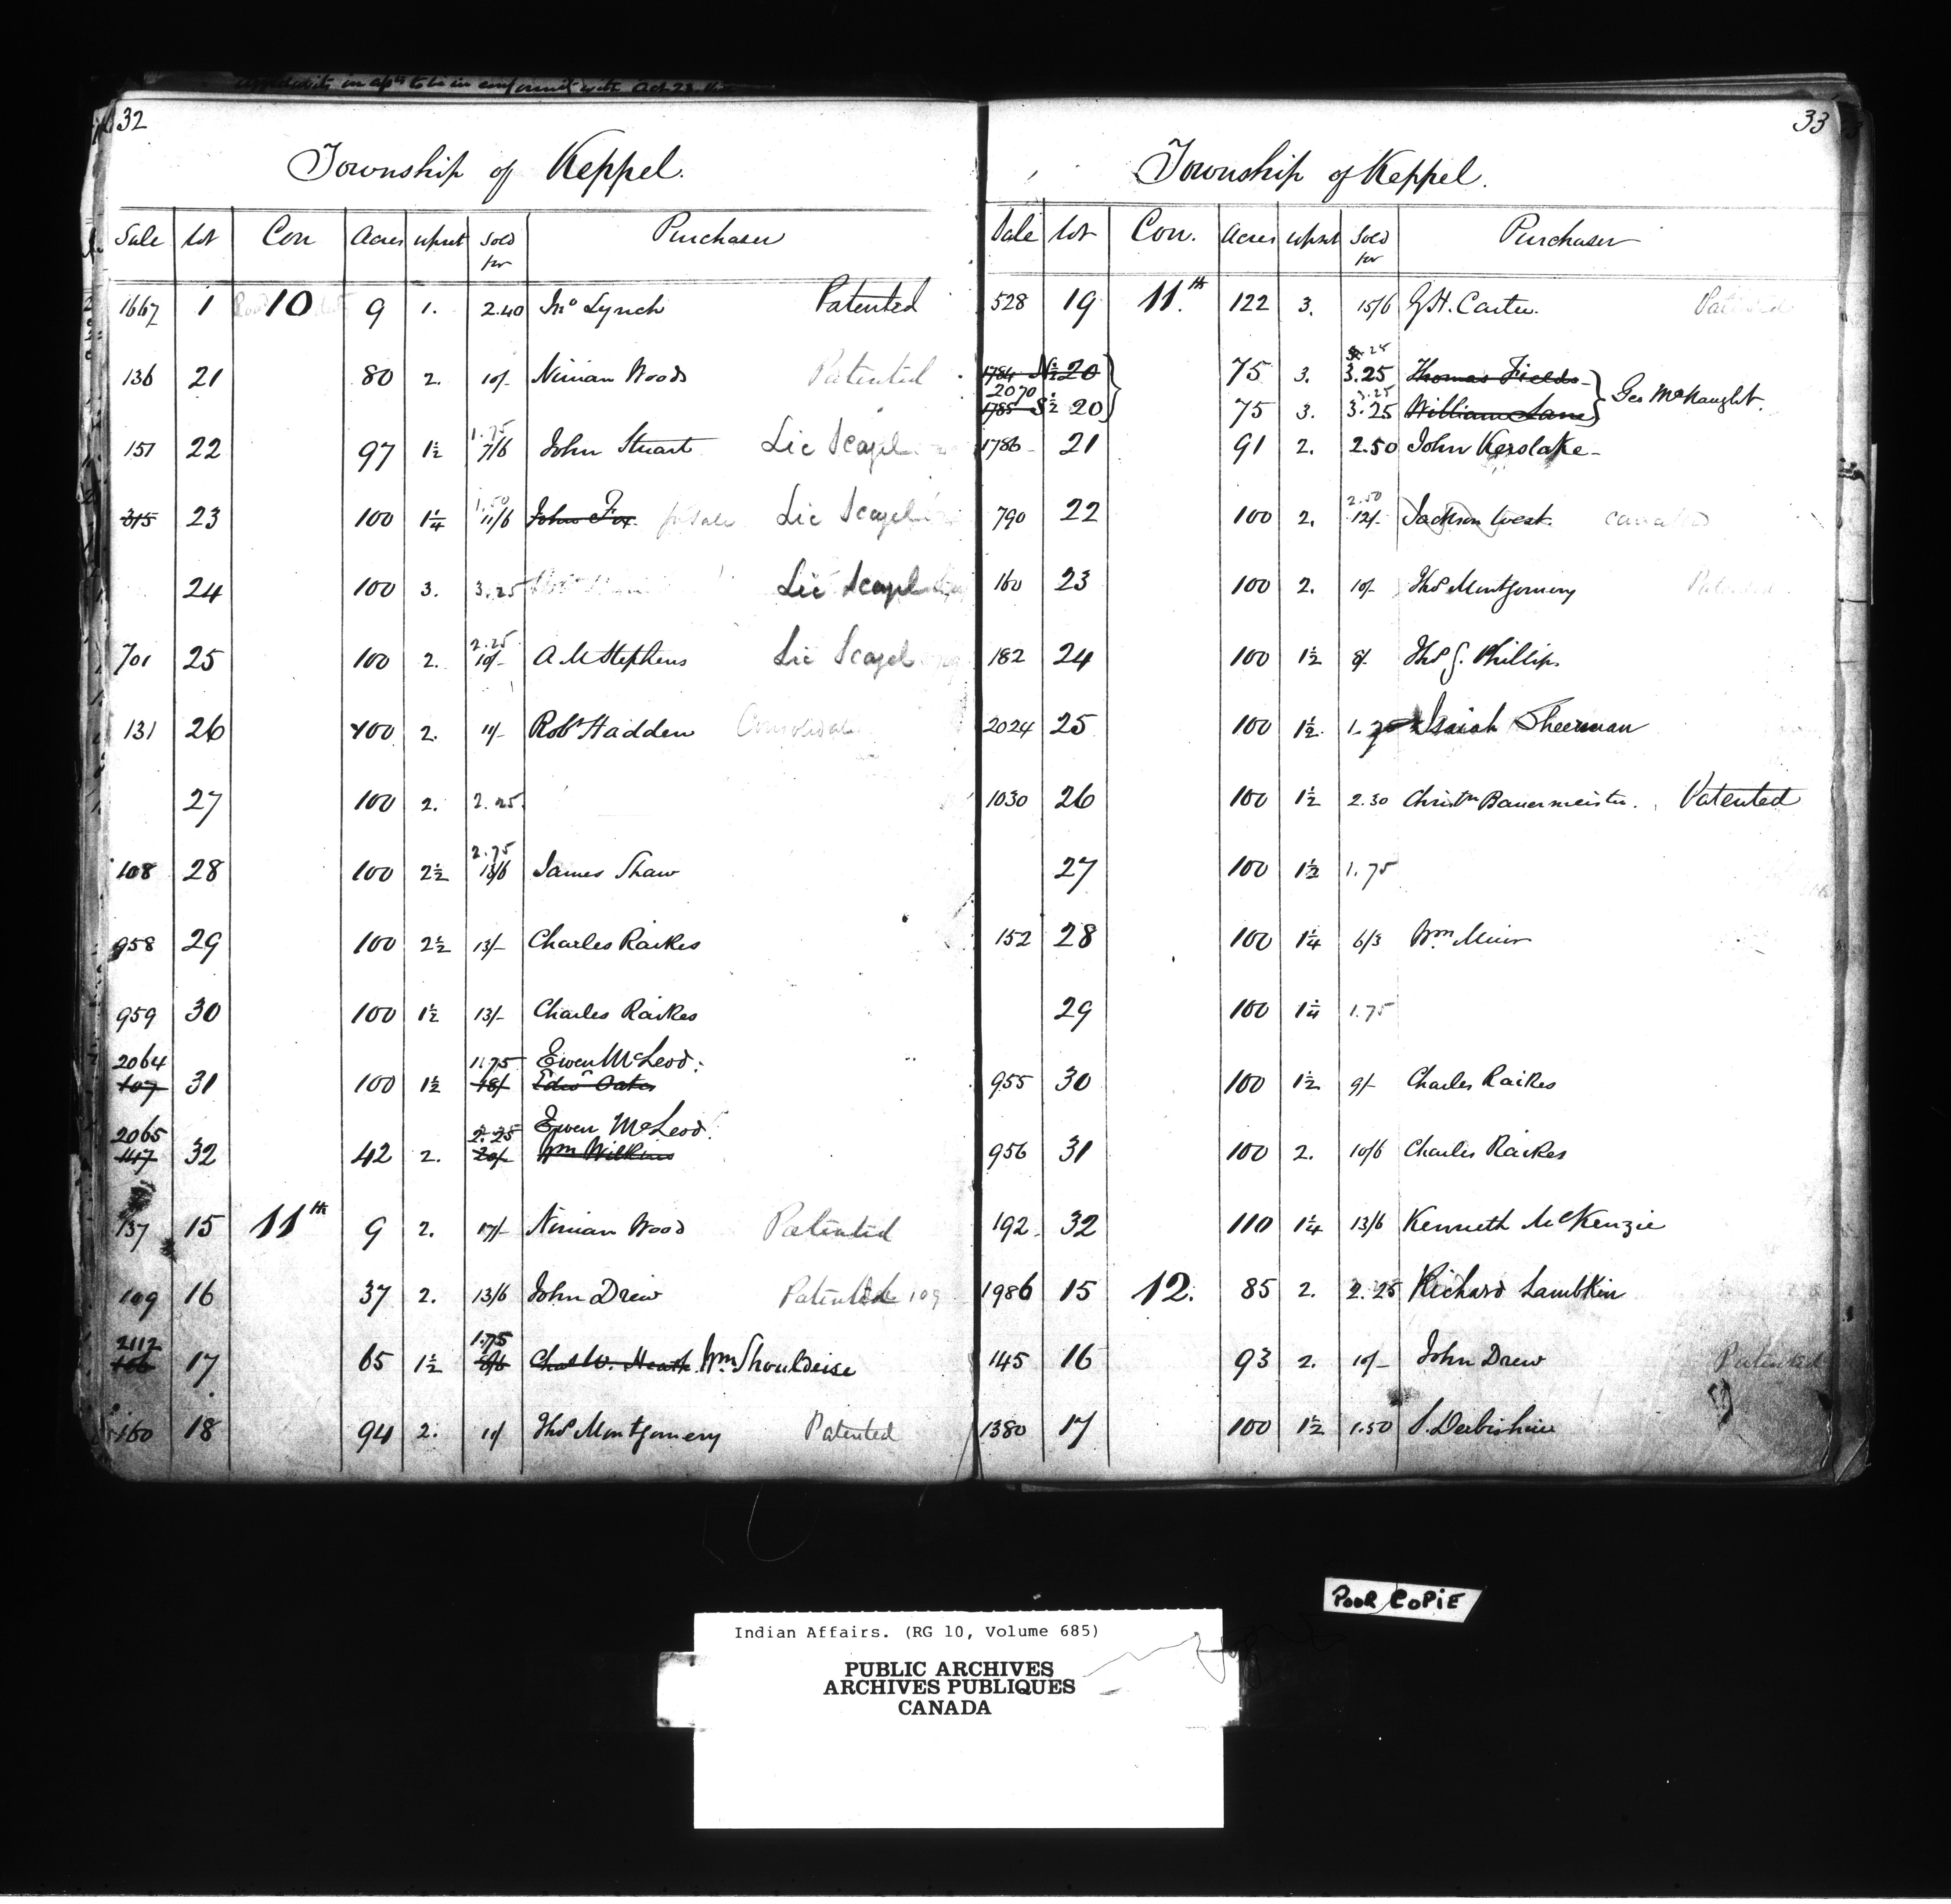 32
Township of Keppel.
Sale Lot Con Acres Upset Sold for Purchaser
1667 1 10 9 1. 2.40 Jno Lynch Patented
136 21 80 2. 10/- Ninian Woods Patented
151 22 97 1½ 1.75 7/6 John Stuart Lic Scazel
315 23 100 1¼ 1.50 11/6 John Fox Lic Scazel
24 100 3. 3.25 Lic Scazel
701 25 100 2. 2.25 10/- A M Stephens Lic Scazel
131 26 100 2. 11/- Robt Hadden Consolidate
27 100 2. 2.25
108 28 100 2½ 2.75 13/6 James Shaw
958 29 100 2½ 13/- Charles Raikes
959 30 100 1½ 13/- Charles Raikes
2064 1.75 Ewen McLeod.
107 31 100 1½ 18/ Edwd Oates
2065 2.25 Ewen McLeod.
117 32 42 2. 20/- Wm Wilkins
137 15 11th 9 2. 17/- Ninian Wood Patented
109 16 37 2. 13/6 John Drew Patented 109
2112 1.75
17 65 1½ 8/6 Chas W. Heath Wm Shouldeise
160 18 94 2. 11/ Thos Montgomery Patented
33
Township of Keppel.
Sale Lot Con. Acres Upset Sold for Purchaser
528 19 11th 122 3. 15/6 G.H. Carter. Patented
1784 N½ 20 75 3. 3.25 Thomas Fields
2070 3.25 Geo McNaught.
1785 S½ 20 75 3. 3.25 William Lane
1786 21 91 2. 2.50 John Kerslake
790 22 100 2. 2.50 12/- Jackson West
160 23 100 2. 10/- Thos Montgomery Patented
182 24 100 1½ 8/- Thos G. Phillips
2024 25 100 1½ Isaiah Sheerman
1030 26 100 1½ 2.30 Christn Bauermeister. Patented
27 100 1½ 1.75
152 28 100 1¼ 6/3 Wm Muir
29 100 1¼ 1.75
955 30 100 1½ 9/- Charles Raikes
956 31 100 2. 10/6 Charles Raikes
192 32 110 1¼ 13/6 Kenneth McKenzie
1986 15 12. 85 2. 2.25 Richard Lambkin
145 16 93 2. 10/- John Drew Patented
1380 17 100 1½ 1.50 S. Derbishire
POOR COPIE
Indian Affairs. (RG 10, Volume 685)
PUBLIC ARCHIVES
ARCHIVES PUBLIQUES
CANADA